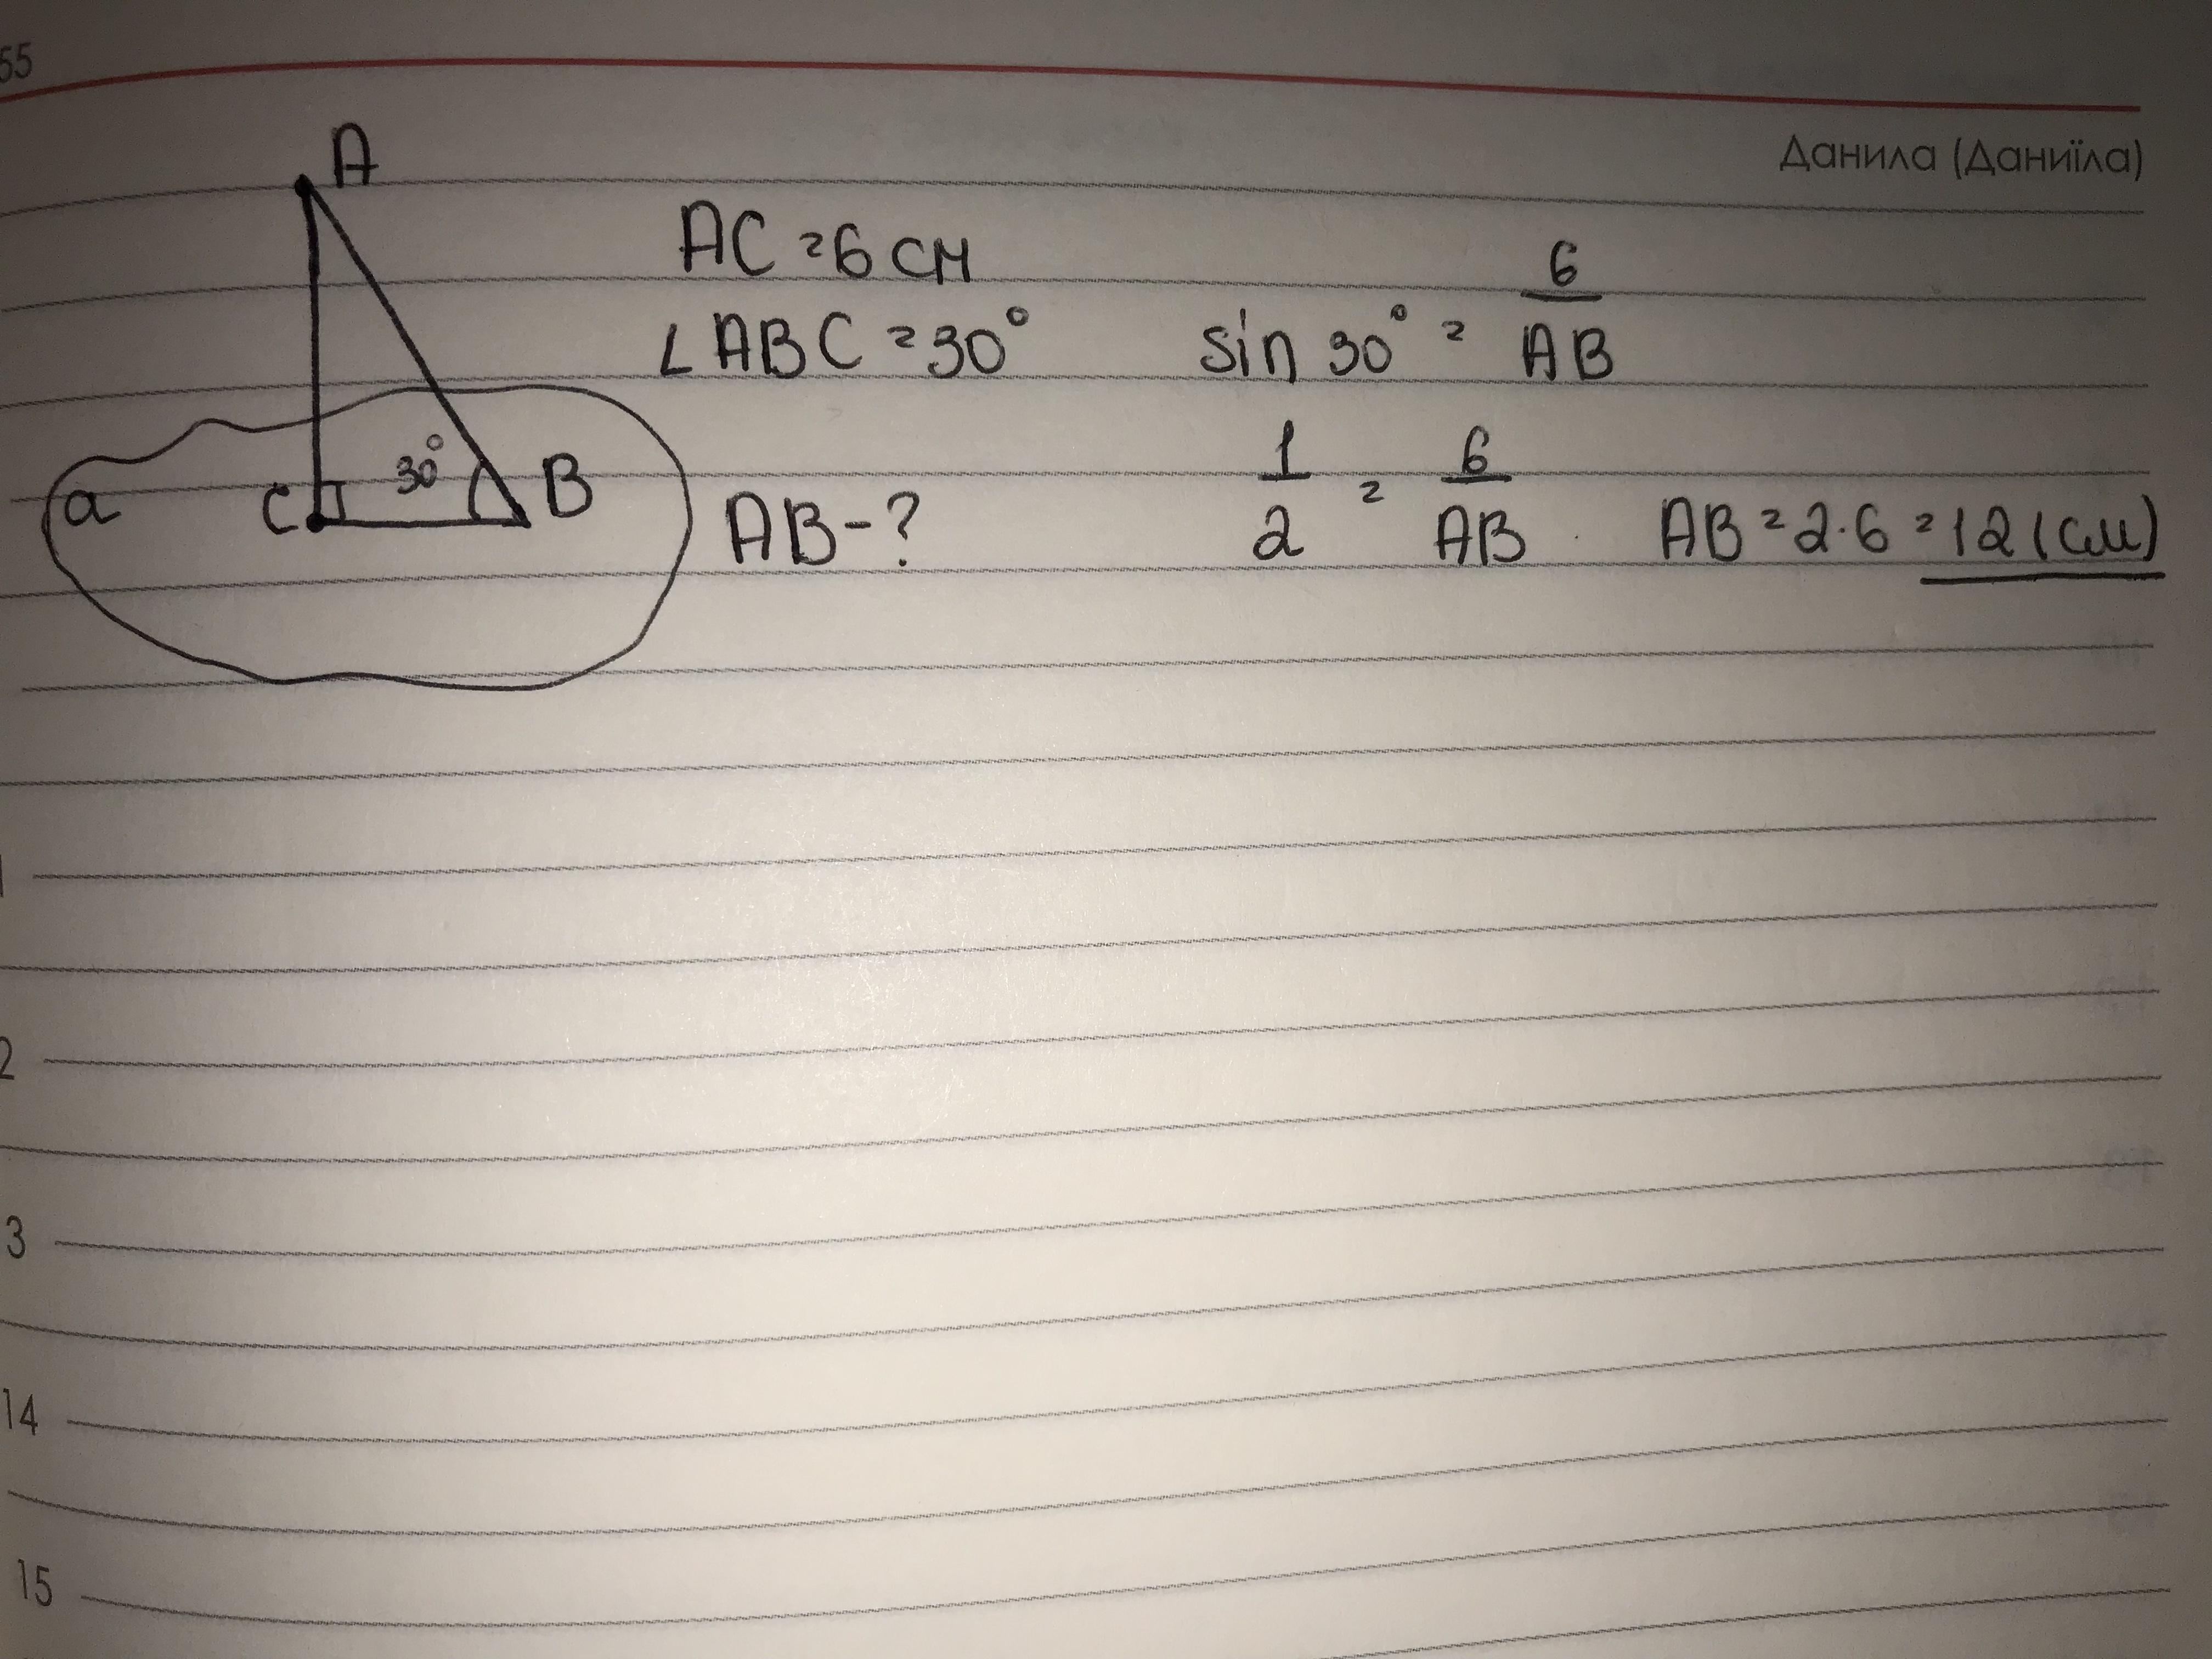 55
Данила (Даниїла)
A
AC = 6 см
∠ABC = 30°
sin 30° = 6/AB
30°
a
C
B
AB - ?
1/2 = 6/AB
AB = 2·6 = 12 (см)
2
3
14
15